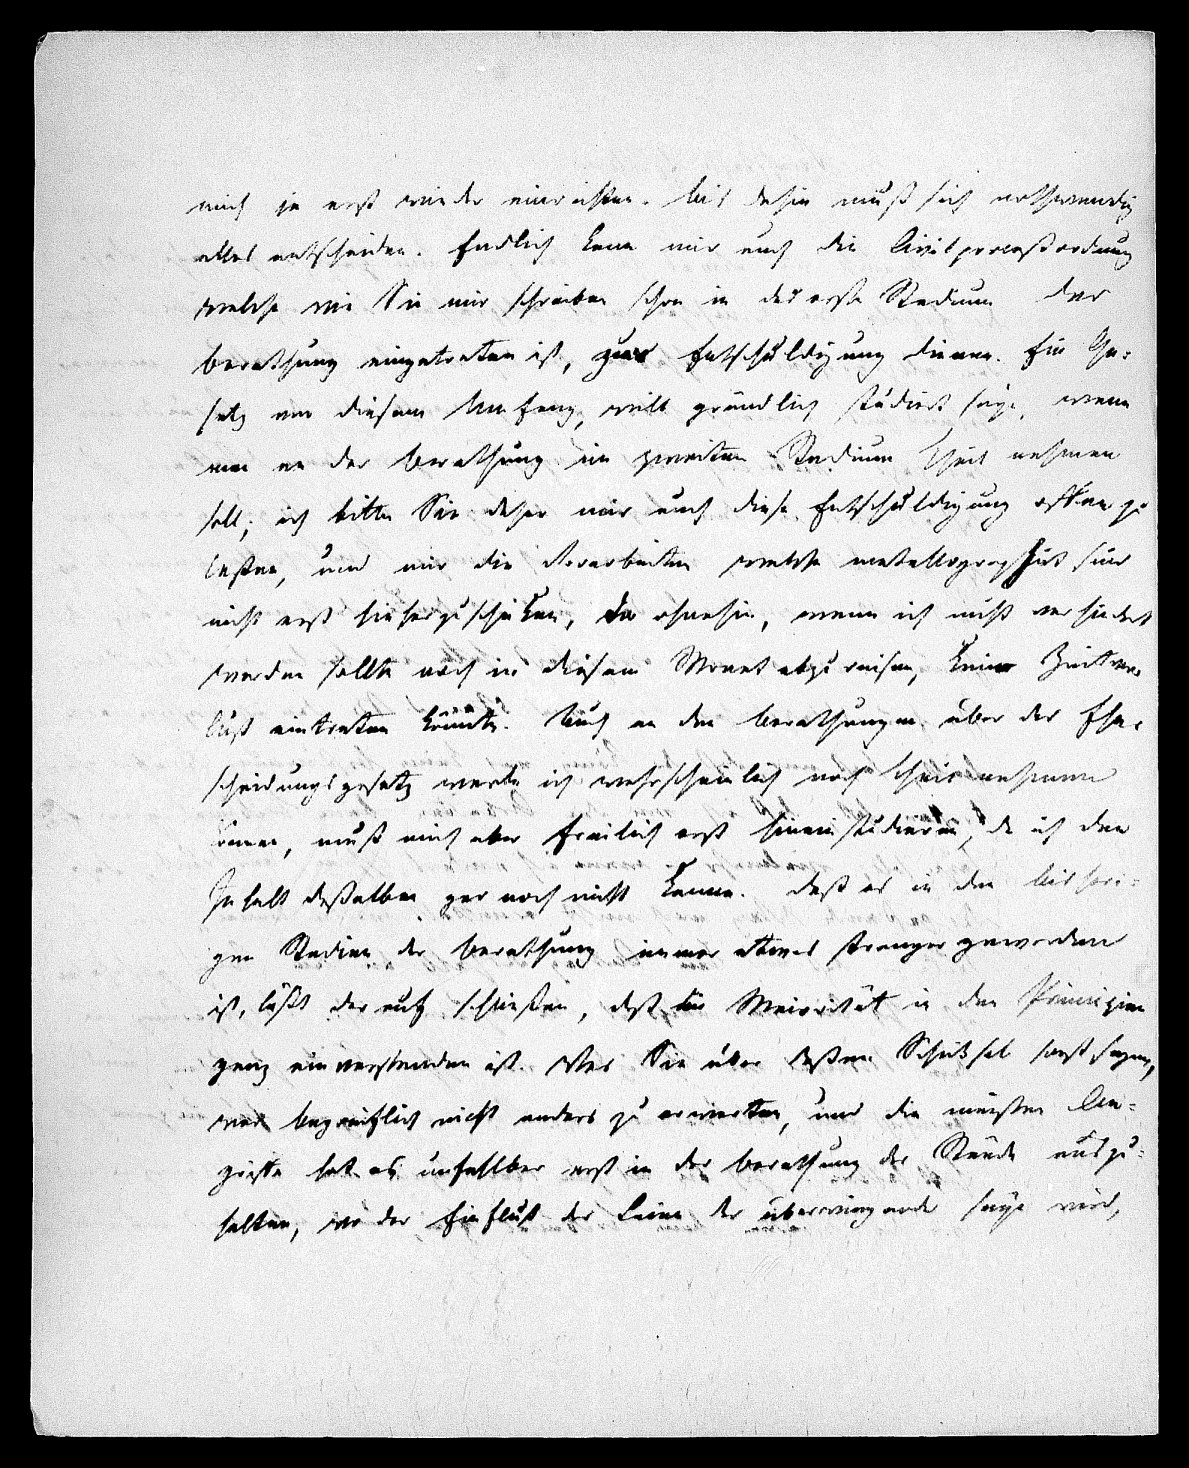 mich ja erst wieder einrichten. Bis dahin muß sich nothwendig
alles entscheiden. Endlich kann mir auch die Civilproceßordnung
welche wie Sie mir schreiben schon in das erste Stadium der
Berathung eingetreten ist, zur Entschuldigung dienen. Ein Ge-
setz von diesem Umfang, will gründlich studiert seyn, wenn
man an der Berathung im zweiten Stadium Theil nehmen
soll; ich bitte Sie daher mir auch diese Entschuldigung offen zu
laßen, und mir die Vorarbeiten welche metallographirt sind
nicht erst hieherzuschicken, da ohnehin, wenn ich nicht verhindert
werden sollte noch in diesem Monat abzureisen, kein Zeitver-
lust eintreten könnte. Auch an den Berathungen über das Ehe-
scheidungsgesetz werde ich wahrscheinlich noch theilnehmen
können, muß mich aber freilich erst hinein studieren, da ich den
Inhalt deßelben gar noch nicht kenne. Daß es in den bisheri-
gen Stadien der Berathung immer etwas strenger geworden
ist, läßt darauf schließen, daß die Majorität in den Principien
ganz einverstanden ist. Was Sie über deßen Schicksal sonst sagen,
war begreiflich nicht anders zu erwarten, und die meisten An-
griffe hat es unfehlbar erst in der Berathung der Stände auszu-
halten, wo der Einfluß der Laien der überwiegende seyn wird,